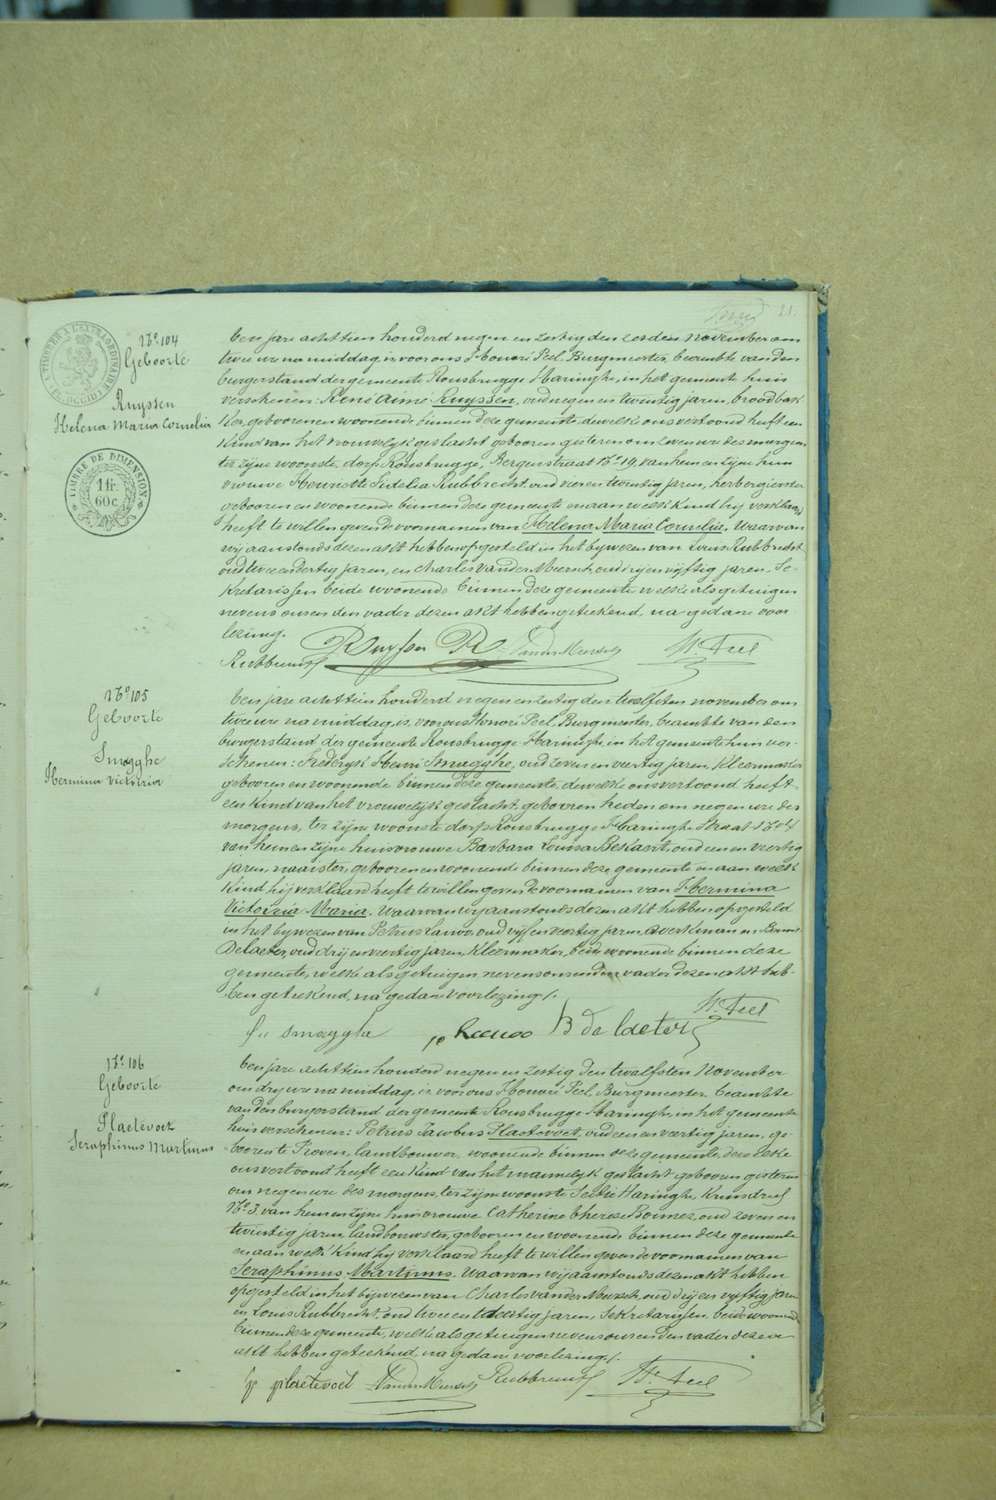 21.
TIMBRE A L'EXTRAORDINAIRE
N.º 104
Geboorte
Ruyssen
Helena Maria Cornelia
TIMBRE DE DIMENSION
1 fr
60 c
Een jare achttien honderd negen en zestig den November om
twee ure namiddag, is voor ons Honoré Peel, Burgmeester, beambte van den
burgerstand der gemeente Rousbrugge Haringhe, in het gemeente huis
verschenen: René Aimé Ruyssen, oud negen en twintig jaren, broodbak-
ker, geboren en woonende binnen deze gemeente, dewelke ons vertoond heeft een
kind van het vrouwelijk geslacht geboren gisteren om zeven ure des morgens
ter zijne woonste dorp Rousbrugge, Bergenstraat N.º 19, van hem en zijne huis
vrouwe Henriette Fidelia Rubbrecht, oud vier en twintig jaren, herbergierster
geboren en woonende binnen deze gemeente en aan welk kind hij verklaard
heeft te willen geven de voornamen van Helena Maria Cornelia. Waarvan
wij aanstonds dezen akt hebben opgesteld in het bijwezen van Louis Rubbrecht
oud twee en dertig jaren, en Charles Vander Meersch, oud drij en vijftig jaren. Se-
kretarissen beide woonende binnen deze gemeente welke als getuigen
nevens ons en den vader dezen akt hebben geteekend, na gedane voor
lezing.
Ruyssen R Vander Meersch H. Peel
Rubbrecht
N.º 105
Geboorte
Smagghe
Hermina Victorina
Een jare achttien honderd negen en zestig den twalfsten november om
twee ure namiddag, is voor ons Honoré Peel, Burgmeester, beambte van den
burgerstand der gemeente Rousbrugge Haringhe, in het gemeente huis ver-
schenen: Frederyk Henri Smagghe, oud zeven en veertig jaren, Kleermaker
geboren en woonende binnen deze gemeente, dewelke ons vertoond heeft
een kind van het vrouwelijk geslacht, geboren heden om negen ure des
morgens, ter zijne woonste dorp Rousbrugge Haringhe Straat N.º 4
van hem en zijne huisvrouwe Barbara Louisa Bekaert, oud een en veertig
jaren, naaister, geboren en woonende binnen deze gemeente en aan welk
kind hij verklaard heeft te willen geven de voornamen van Hermina
Victoria Maria. Waarvan wij aanstonds dezen akt hebben opgesteld
in het bijwezen van Petrus oud vijf en veertig jaren en
Delaeter, oud drij en veertig jaren, Kleermaker, beide woonende binnen deze
gemeente, welke als getuigen nevens ons en den vader dezen akt heb-
ben geteekend, na gedane voorlezing.
H. Peel
smagghe B de laeter
N.º 106
Geboorte
Plaetevoet
Seraphinus Martinus
Een jare achttien honderd negen en zestig den twalfsten November
om drij ure namiddag, is voor ons Honoré Peel, Burgmeester, beambte
van den burgerstand der gemeente Rousbrugge Haringhe, in het gemeente
huis verschenen: Petrus Jacobus Plaetevoet, oud een en veertig jaren, ge-
boren te Proven, landbouwer, woonende binnen deze gemeente, dewelke
ons vertoond heeft een kind van het mannelijk geslacht, geboren gisteren
om negen ure des morgens, ter zijne woonste Haringhe,
N.º 3, van hem en zijne huisvrouwe Catherine Therese Bonnez, oud zeven en
twintig jaren, landbouwster, geboren en woonende binnen deze gemeente
en aan welk kind hij verklaard heeft te willen geven de voornamen van
Seraphinus Martinus. Waarvan wij aanstonds dezen akt hebben
opgesteld in het bijwezen van Charles Vander Meersch, oud drij en vijftig jaren
en Louis Rubbrecht, oud twee en dertig jaren, Sekretarissen, beide woonende
binnen deze gemeente, welke als getuigen nevens ons en den vader dezen
akt hebben geteekend, na gedane voorlezing.
plaetevoet Vander Meersch Rubbrecht H. Peel